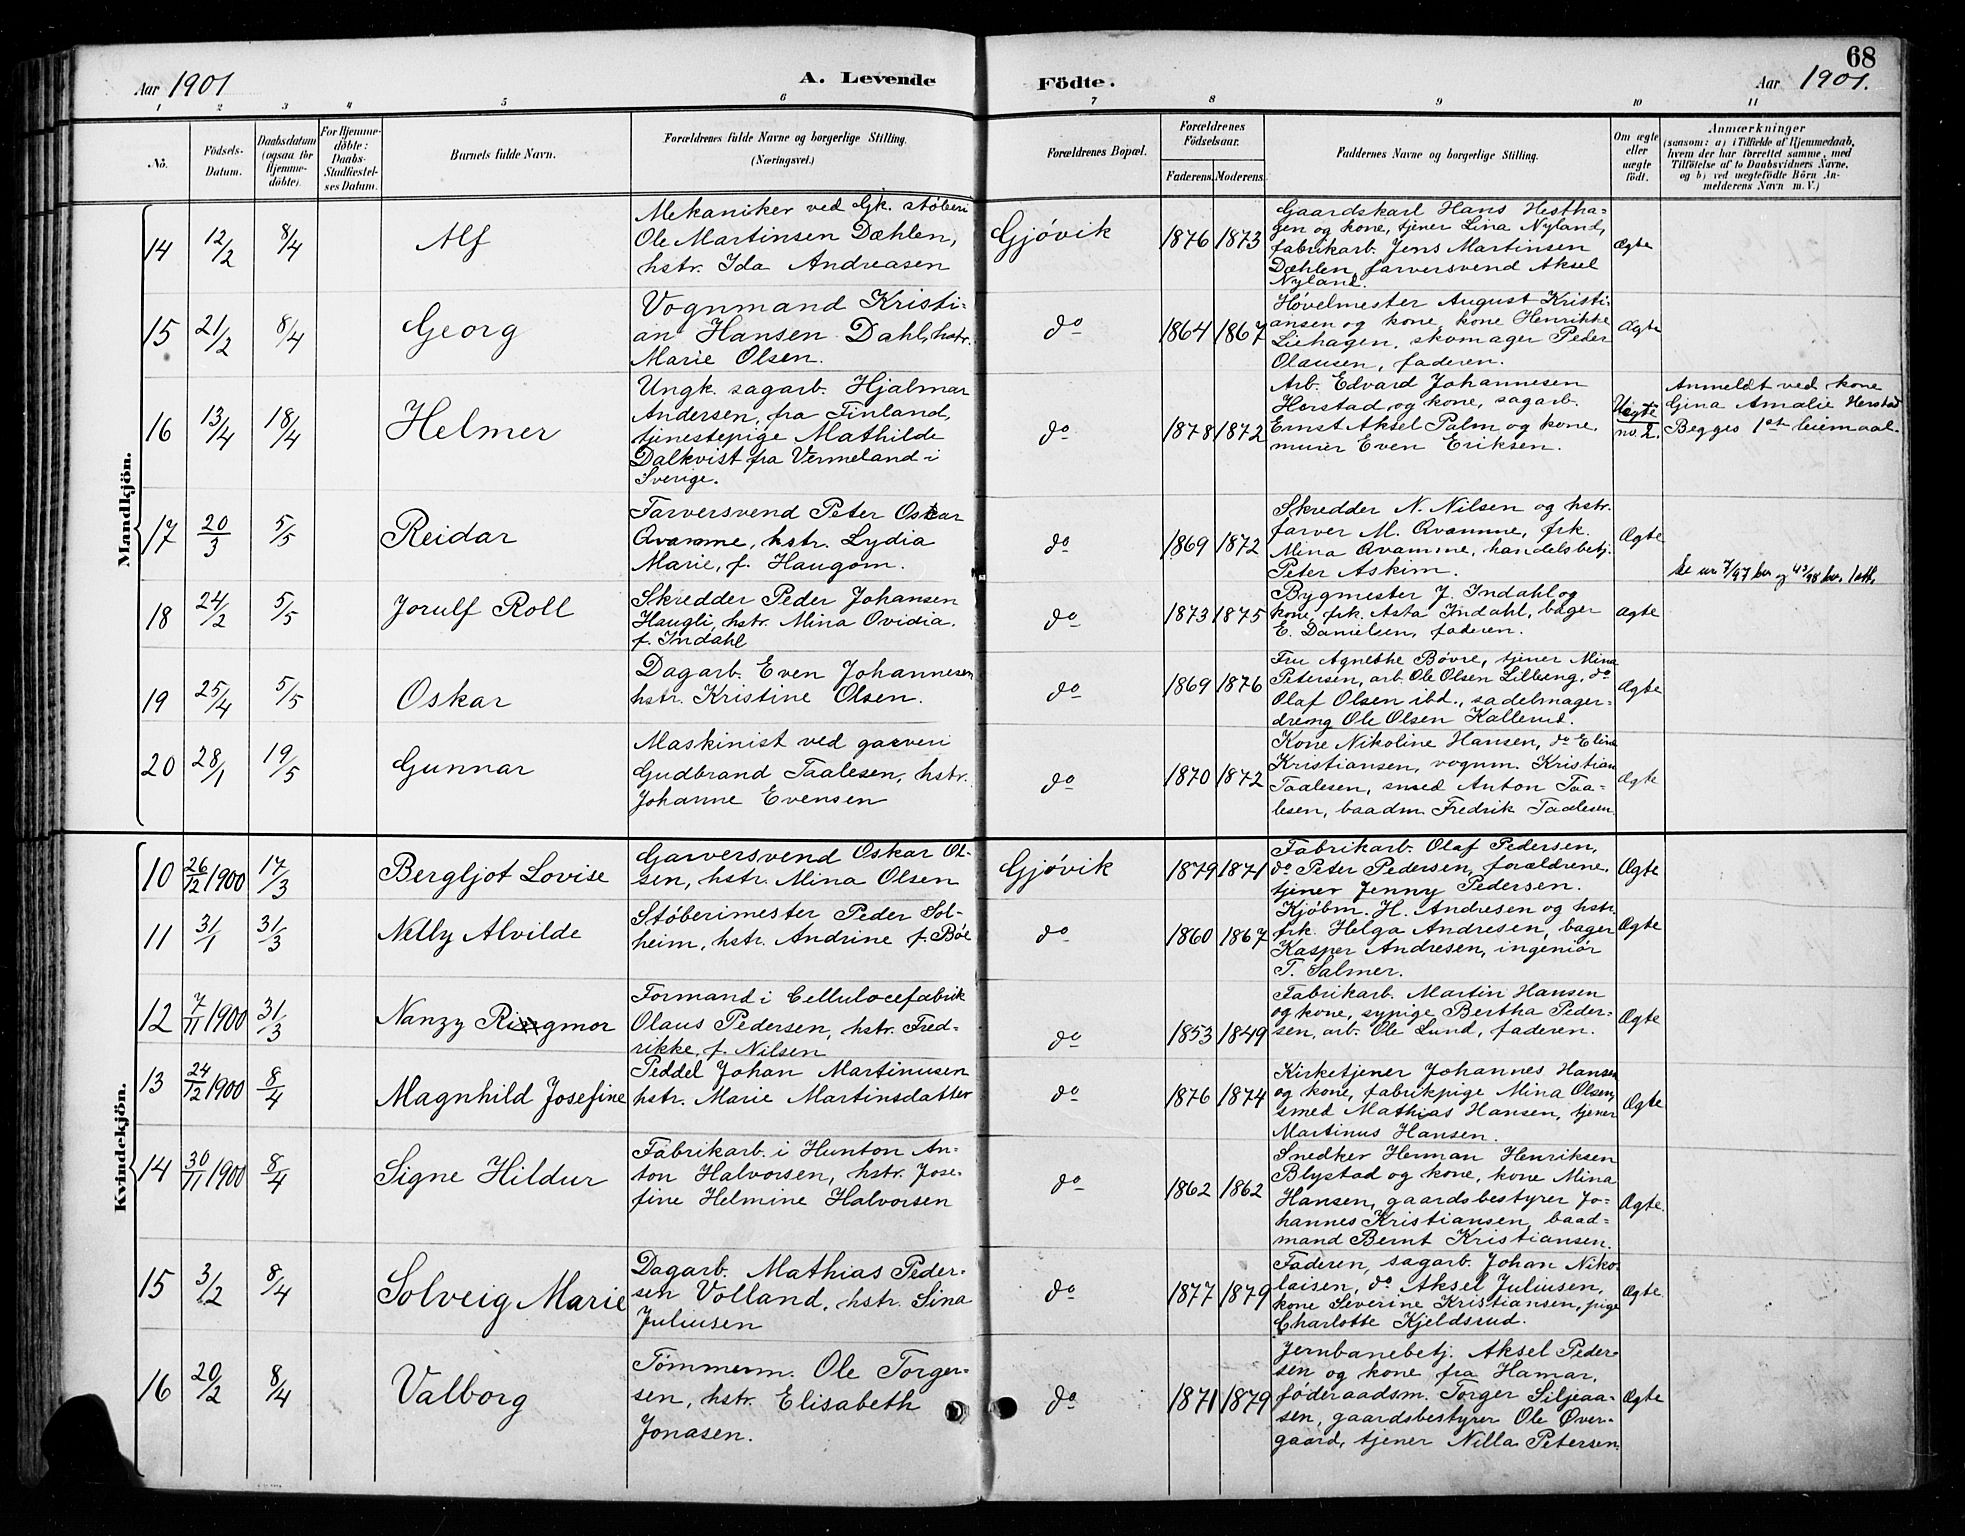 68
Aar 1901
A. Levende
Födte.
Aar 1901.
1 2 3 4 5 6 7 8 9 10 11
No.
Födsels-
Datum.
Daabsdatum
(ogsaa for
Hjemme-
döbte).
For Hjemme-
döbte:
Daabs-
Stadfæstel-
ses Datum.
Barnets fulde Navn.
Forældrenes fulde Navne og borgerlige Stilling.
(Næringsvei.)
Forældrenes Bopæl.
Forældrenes
Födselsaar.
Faderens. Moderens.
Faddernes Navne og borgerlige Stilling.
Om ægte
eller
uægte
födt.
Anmærkninger
(saasom: a) i Tilfælde af Hjemmedaab,
hvem der har forrettet samme, med
Tilföielse af to Daabsvidners Navne.
og b) ved uægtefödte Börn An-
melderens Navn m. V.)
Mandkjön.
14 12/2 8/4 Alf
Mekaniker ved Gjk. støberi
Ole Martinsen Dæhlen,
hstr. Ida Andreasen
Gjøvik 1876 1873
Gaardskarl Hans Hestha-
gen og kone, tjener Lina Nyland,
fabrikarb. Jens Martinsen
Dæhlen, farversvend Aksel
Nyland.
Ægte
15 21/2 8/4 Georg
Vognmand Kristi-
an Hansen Dahl, hstr.
Marie Olsen.
do 1864 1867
Høvelmester August Kristi-
ansen og kone, kone Henrikke
Liehagen, skomager Peder
Olausen, faderen.
Ægte
16 13/4 18/4 Helmer
Ungk. sagarb. Hjalmar
Andersen, fra Finland,
tjenestepige Mathilde
Dalkvist fra Vermeland i
Sverige.
do 1878 1872
Arb. Edvard Johannesen
Herstad og kone, sagarb.
Ernst Aksel Palm og kone,
murer Even Eriksen.
Uægte
no. 2.
Anmeldt ved kone
Gina Amalie Herstad
Begges 1st leiemaal.
17 20/3 5/5 Reidar
Farversvend Peter Oskar
Qvamme, hstr. Lydia
Marie, f. Haugom.
do 1869 1872
Skredder N. Nilsen og hstr.
farver M. Qvamme, frk.
Mina Qvamme, handelsbetj.
Peter Askim.
Ægte
18 24/2 5/5 Jorulf Roll
Skredder Peder Johansen
Haugli, hstr. Mina Ovidia,
f. Indahl
do 1873 1875
Bygmester J. Indahl og
kone, frk. Asta Indahl, bager
E. Danielsen, faderen.
Ægte
19 25/4 5/5 Oskar
Dagarb. Even Johannesen
hstr. Kristine Olsen.
do 1869 1876
Fru Agnethe Bøvre, tjener Mina
Petersen, arb. Ole Olsen Lilleeng, do
Olaf Olsen ibd., sadelmager-
dreng Ole Olsen Kallerud.
Ægte
20 28/1 19/5 Gunnar
Maskinist ved garveri
Gudbrand Taalesen, hstr.
Johanne Evensen
do 1870 1872
Kone Nikoline Hansen, do Elina
Kristiansen, vognm. Kristian
Taalesen, smed Anton Taa-
lesen, baadm. Fredrik Taalesen
Ægte
Kvindekjön.
10 26/12 1900 17/3 Bergljot Lovise
Garversvend Oskar Ol-
sen, hstr. Mina Olsen
Gjøvik 1879 1871
Fabrikarb. Olaf Pedersen,
do Peter Pedersen, forældrene,
tjener Jenny Pedersen.
Ægte
11 31/1 31/3 Nelly Alvilde
Støberimester Peder Sol-
heim, hstr. Andrine f. Bøe
do 1860 1867
Kjøbm. H. Andresen og hstr.
frk. Helga Andresen, bager
Kasper Andresen, ingeniør
T. Salmer.
Ægte
12 7/11 1900 31/3
Formand i Cellulocefabrik
Olaus Pedersen, hstr. Fred-
rikke, f. Nilsen
do 1853 1849
Fabrikarb. Martin Hansen
og kone, sypige Bertha Peder-
sen, arb. Ole Lund, faderen.
Ægte
13 24/12 1900 8/4 Magnhild Josefine
Peddel Johan Martinusen
hstr. Marie Martinsdatter
do 1876 1874
Kirketjener Johannes Hansen
og kone, fabrikpige Mina Olsen,
smed Mathias Hansen, tjener
Martinus Hansen.
Ægte
14 30/11 1900 8/4 Signe Hildur
Fabrikarb. i Hunton An-
ton Halvorsen, hstr. Jose-
fine Helmine Halvorsen
do 1862 1862
Snedker Herman Henriksen
Blystad og kone, kone Mina
Hansen, gaardsbestyrer Jo-
hannes Kristiansen, baad-
mand Bernt Kristiansen.
Ægte.
15 3/2 8/4 Solveig Marie
Dagarb. Mathias Peder-
sen Volland, hstr. Sina
Juliusen
do 1877 1879
Faderen, sagarb. Johan Niko-
laisen, do Aksel Juliusen,
kone Severine Kristiansen, pige
Charlotte Kjeldsrud.
Ægte.
16 20/2 8/4 Valborg
Tømmerm. Ole Torger-
sen, hstr. Elisabeth
Jonasen.
do 1871 1879
Jernbanebetj. Aksel Peder-
sen og kone fra Hamar,
føderaadsm. Torger Siljeaa-
sen, gaardsbestyrer Ole Øver-
gaard, tjener Nilla Petersen.
Ægte